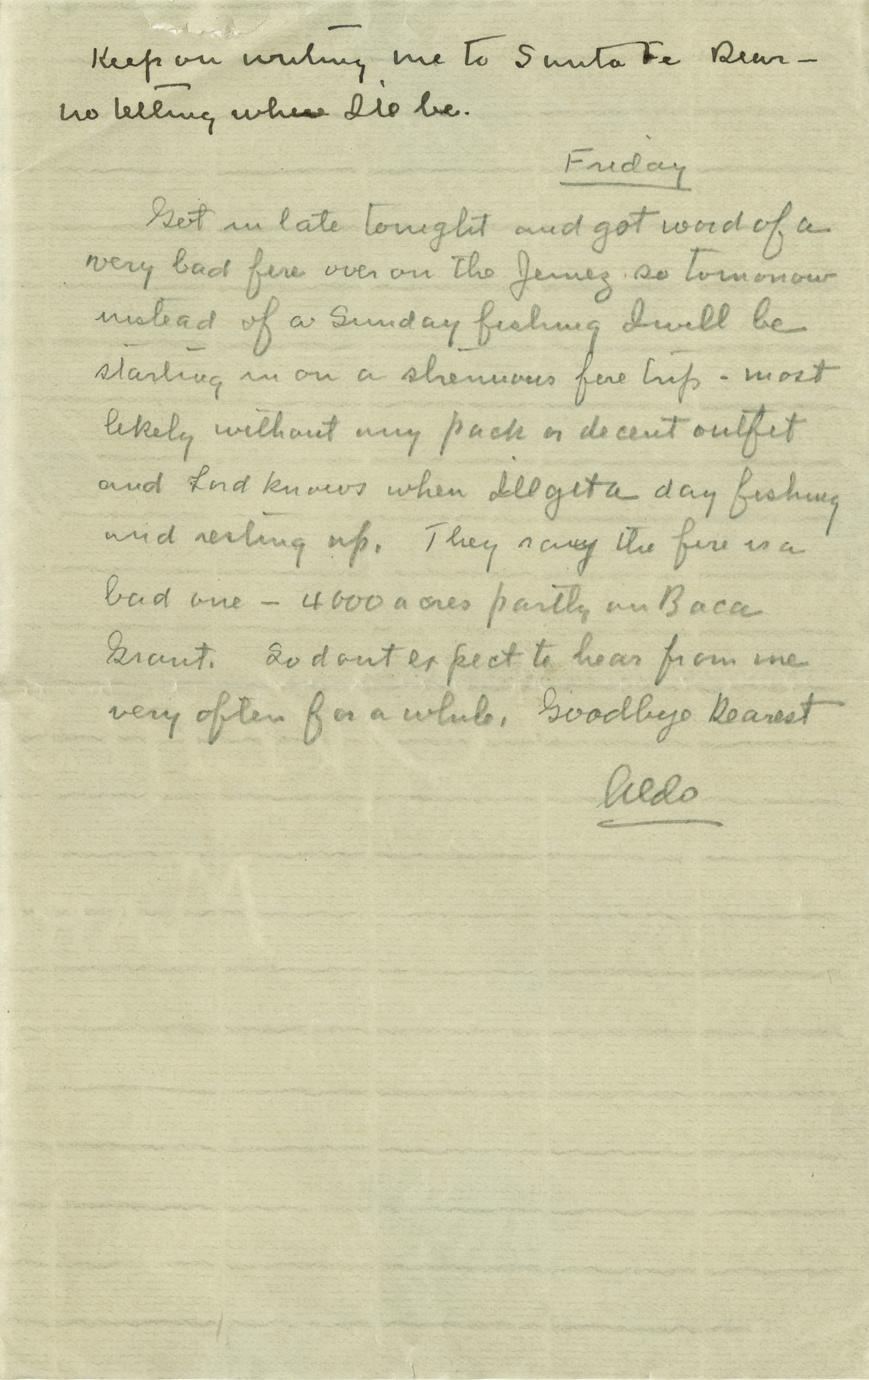 Keep on writing me to Santa Fe Dear –
no telling where I'll be.
Friday
Got in late tonight and got word of a
very bad fire over on the Jemez so tomorrow
instead of a Sunday fishing I will be
starting in on a strenuous fire trip - most
likely without any pack or decent outfit
and Lord knows when I'll get a day fishing
and resting up. They say the fire is a
bad one – 4000 acres partly on Baca
Grant. So dont expect to hear from me
very often for a while. Goodbye Dearest
Aldo